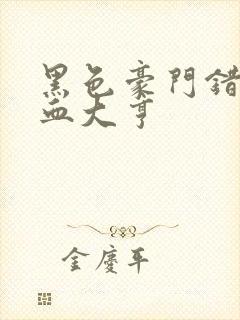 黑色豪門錯
血大亨
金慶平